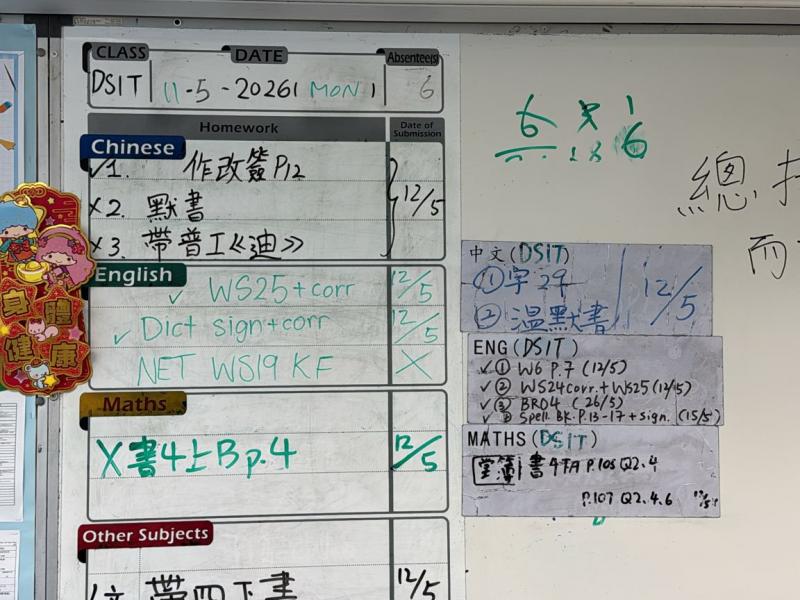 CLASS DATE Absentee(s)
DSIT 11-5-2026 MON 6
Homework Date of Submission
Chinese
✓1. 作改簽P12
x2. 默書
x3. 帶普工《迪》
12/5
English
✓ WS25+corr 12/5
✓ Dict sign+corr 12/5
NET WS19 KF X
Maths
X 書4上B p.4 12/5
Other Subjects
帶四下書 12/5
身體健康
6
6
總
而
中文(DSIT)
①字29
②溫默書
12/5
ENG(DSIT)
✓① W6 P.7 (12/5)
✓② WS24corr.+WS25(12/5)
✓③ BR04 (26/5)
✓④ Spell. BK. P.13-17+sign. (15/5)
MATHS(DSIT)
堂簿 書4下A P.105 Q2.4
P.107 Q2.4.6 12/5